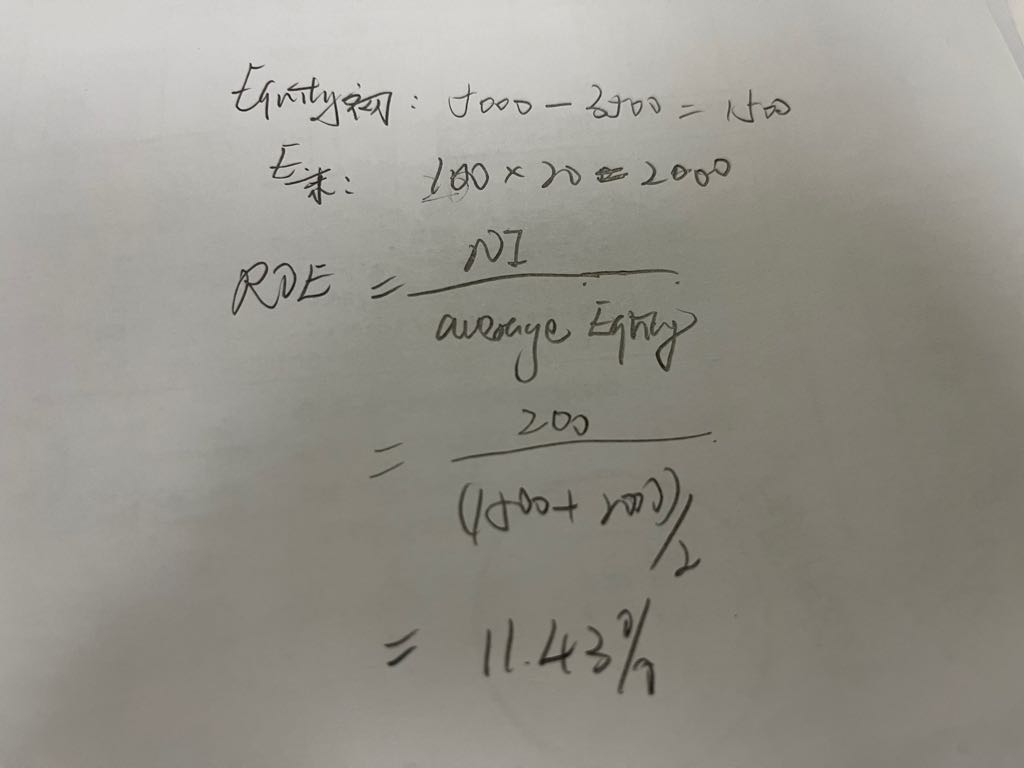 Equity初: 5000 - 3500 = 1500
E末: 100 × 20 = 2000
ROE = NI / average Equity
= 200 / (1500 + 2000)/2
= 11.43%